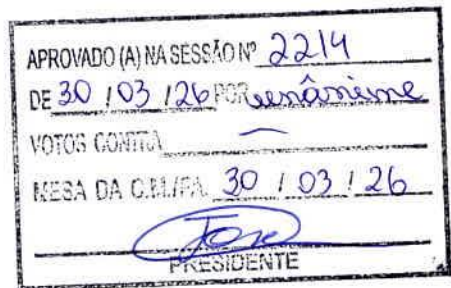 APROVADO (A) NA SESSÃO Nº 2214
DE 30 / 03 / 26 POR unânime
VOTOS CONTRA —
MESA DA C.M./PA. 30 / 03 / 26
PRESIDENTE